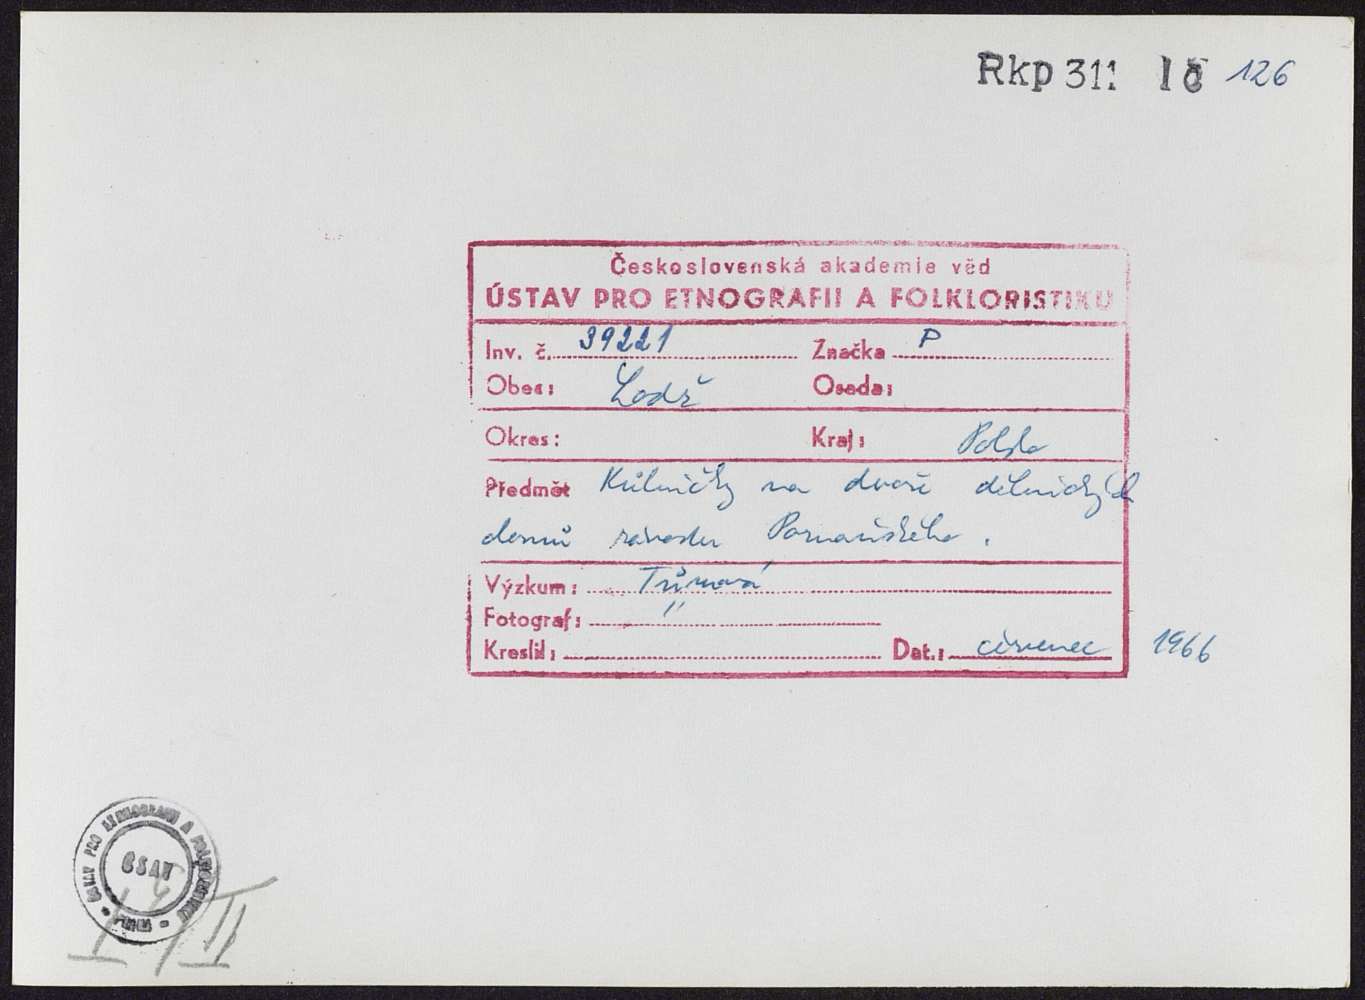 Rkp 311 126
Československá akademie věd
ÚSTAV PRO ETNOGRAFII A FOLKLORISTIKU
Inv. č. 39221 Značka P
Obec: Lodž Osada:
Okres: Kraj: Polsko
Předmět Kůlničky na dvoře dělnických
domů závodu Poznaňského.
Výzkum:
Fotograf: "
Kreslil: Dat.: červenec 1966
ÚSTAV PRO ETNOGRAFII A FOLKLORISTIKU
ČSAV